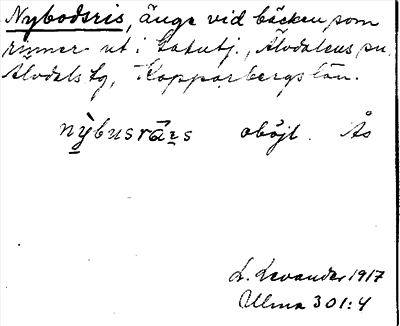 Nybodsris, änge vid bäcken som
rinner ut i Satutj., Älvdalens sn.
Älvdals tg, Kopparbergs län.
nỳbusrās oböjl. Ås
L. Levander 1917
Ulma 301:4